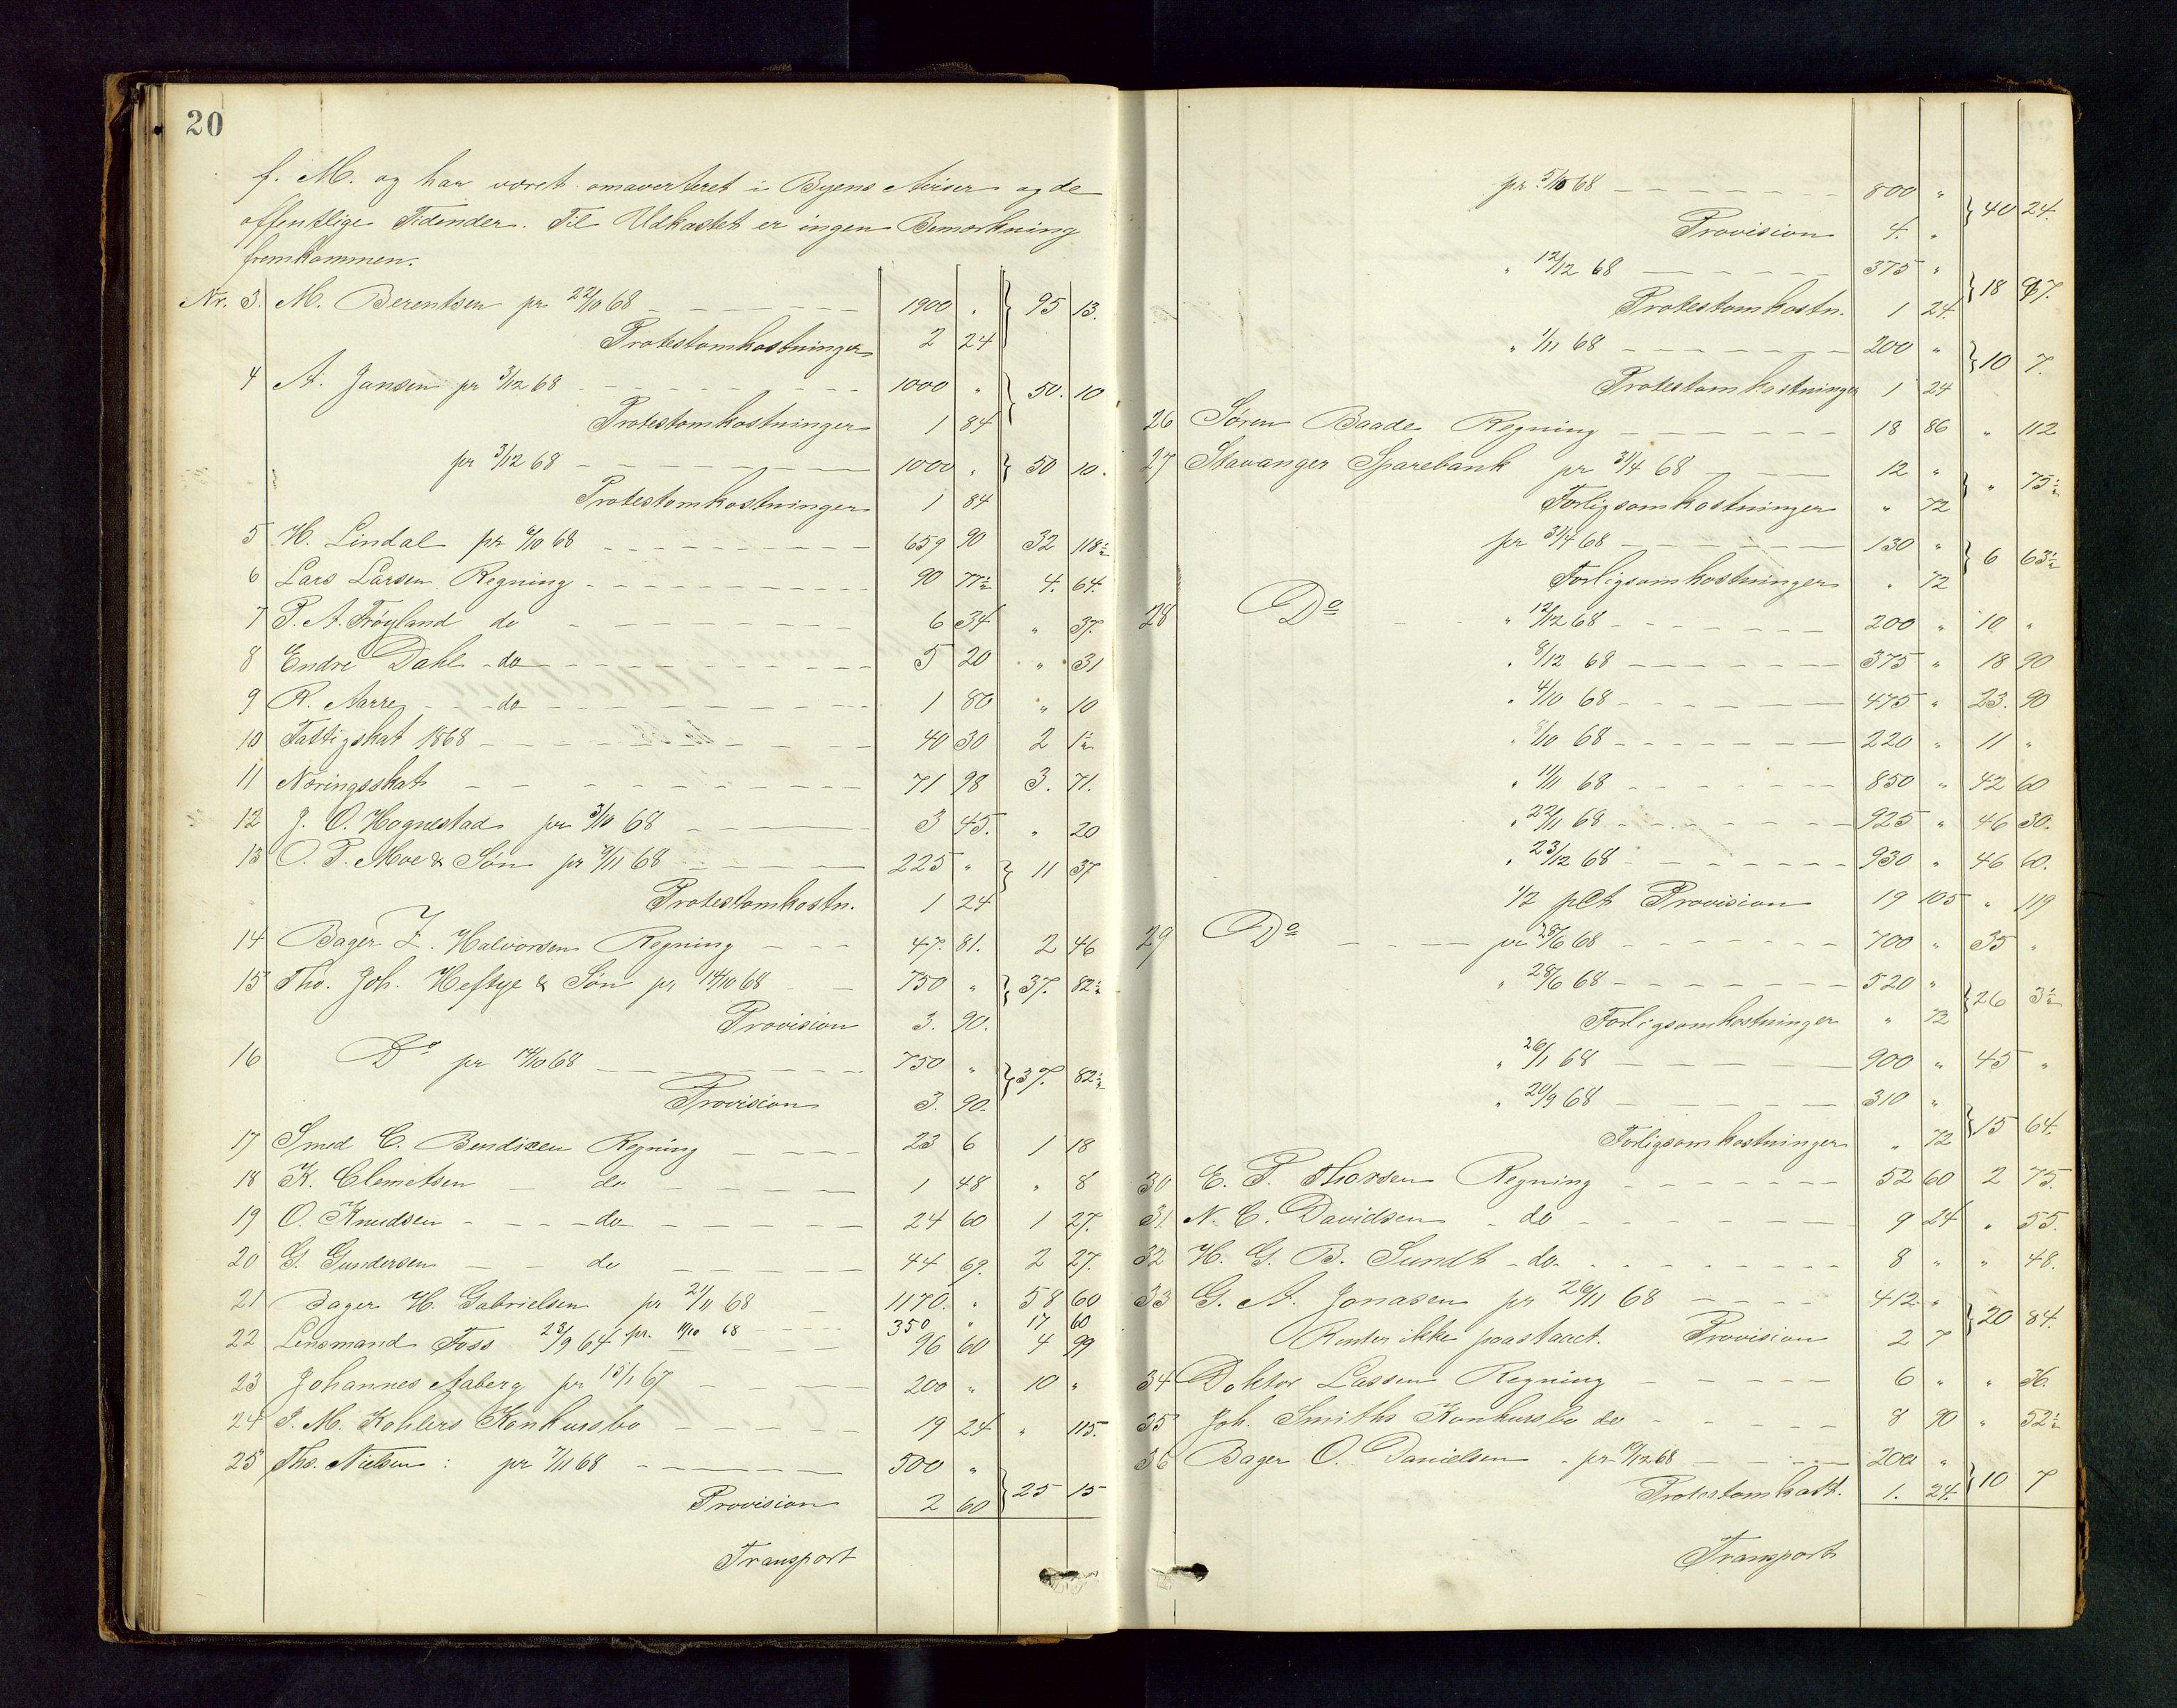 20
f. M. og har været omaverteret i Byens Aviser og de
offentlige Tidender. Til Udkastet er ingen Bemærkning
fremkommen.
Nr. 3. M. Berentsen pr 22/10 68 1900 " } 95 13.
Protestomkostninger 2 24
4 A. Jansen pr 3/12 68 1000 " } 50. 10
Protestomkostninger 1 84
pr 3/12 68 1000 " } 50 10.
Protestomkostninger 1 84
5 H. Lindal pr 6/10 68 659 90 32 118½
6 Lars Larsen Regning 90 77½ 4. 64.
7 P. A. Frøyland do 6 34 " 37.
8 Endre Dahl do 5 20 " 31
9 R. Aarre do 1 80 " 10
10 Fattigskat 1868 40 30 2 1½
11 Næringsskat 71 98 3. 71.
12 J. O. Hognestad pr 3/10 68 3 45. " 20
13 O. P. Moe & Søn pr 9/11 68 225 " } 11 37
Protestomkostn. 1 24
14 Bager Z. Halvorsen Regning 47. 81. 2 46
15 Tho. Joh. Heftye & Søn pr 14/10 68 750 " } 37. 82½
Provision 3. 90.
16 Do pr 14/10 68 750 " } 37. 82½
Provision 3. 90.
17 Smed C. Bendixen Regning 23 6 1 18
18 K. Clemetsen do 1 48 " 8
19 O. Knudsen do 24 60 1 27.
20 G. Gundersen do 44 69. 2 27.
21 Bager H. Gabrielsen pr 21/11 68 1170. " 58 60
pr. 11/10 68 350 " 17 60
22 Lensmand Foss 23/9 64 96 60 4 99
23 Johannes Aaberg pr 15/1 67 200 " 10 "
24 J. M. Kohlers Konkursbo 19 24 " 115.
25 Ths. Nielsen : pr 7/11 68 500 " } 25 15
Provision 2 60
Transport
pr 5/10 68 800 " } 40 24.
Provision 4. "
" 12/12 68 375 " } 18 97.
Protestomkostn. 1 24.
" 1/11 68 200 " } 10 7.
Protestomkostninger 1 24
26 Søren Baade Regning 18 86 " 112
27 Stavanger Sparebank pr 31/4 68 12 " } " 75½
Forligsomkostninger " 72
pr 31/4 68 130 " } 6 63½
Forligsomkostninger " 72
28 Do " 12/12 68 200 " 10 "
" 8/12 68 375 " 18 90
" 4/10 68 475 " 23. 90
" 8/10 68 220 " 11 "
" 11/11 68 850 " 42 60
" 22/11 68 925 " 46 30.
" 23/12 68 930 " 46 60.
1/2 pCt Provision 19 105 " 119
29 Do pr 28/6 68 700 " 35 "
" 28/6 68 520 " } 26 3½
Forligsomkostninger " 72
" 26/1 68 900 " 45 "
" 20/9 68 310 " } 15 64.
Forligsomkostninger " 72
30 E. P. Thorsen Regning 52 60 2 75.
31. N. C. Davidsen do 9 24 " 55.
32 H. G. B. Sundt do 8 " " 48.
33 G. A. Jonasen pr 26/11 68 412 " } 20 84.
Renter ikke paastaaet. Provision 2 7
34 Doktor Lassen Regning 6 " " 36.
35 Joh. Smiths Konkursbo do 8 90 " 52½
36 Bager O. Danielsen pr 19/12 68 200 " } 10 7
Protestomkostn. 1. 24.
Transport